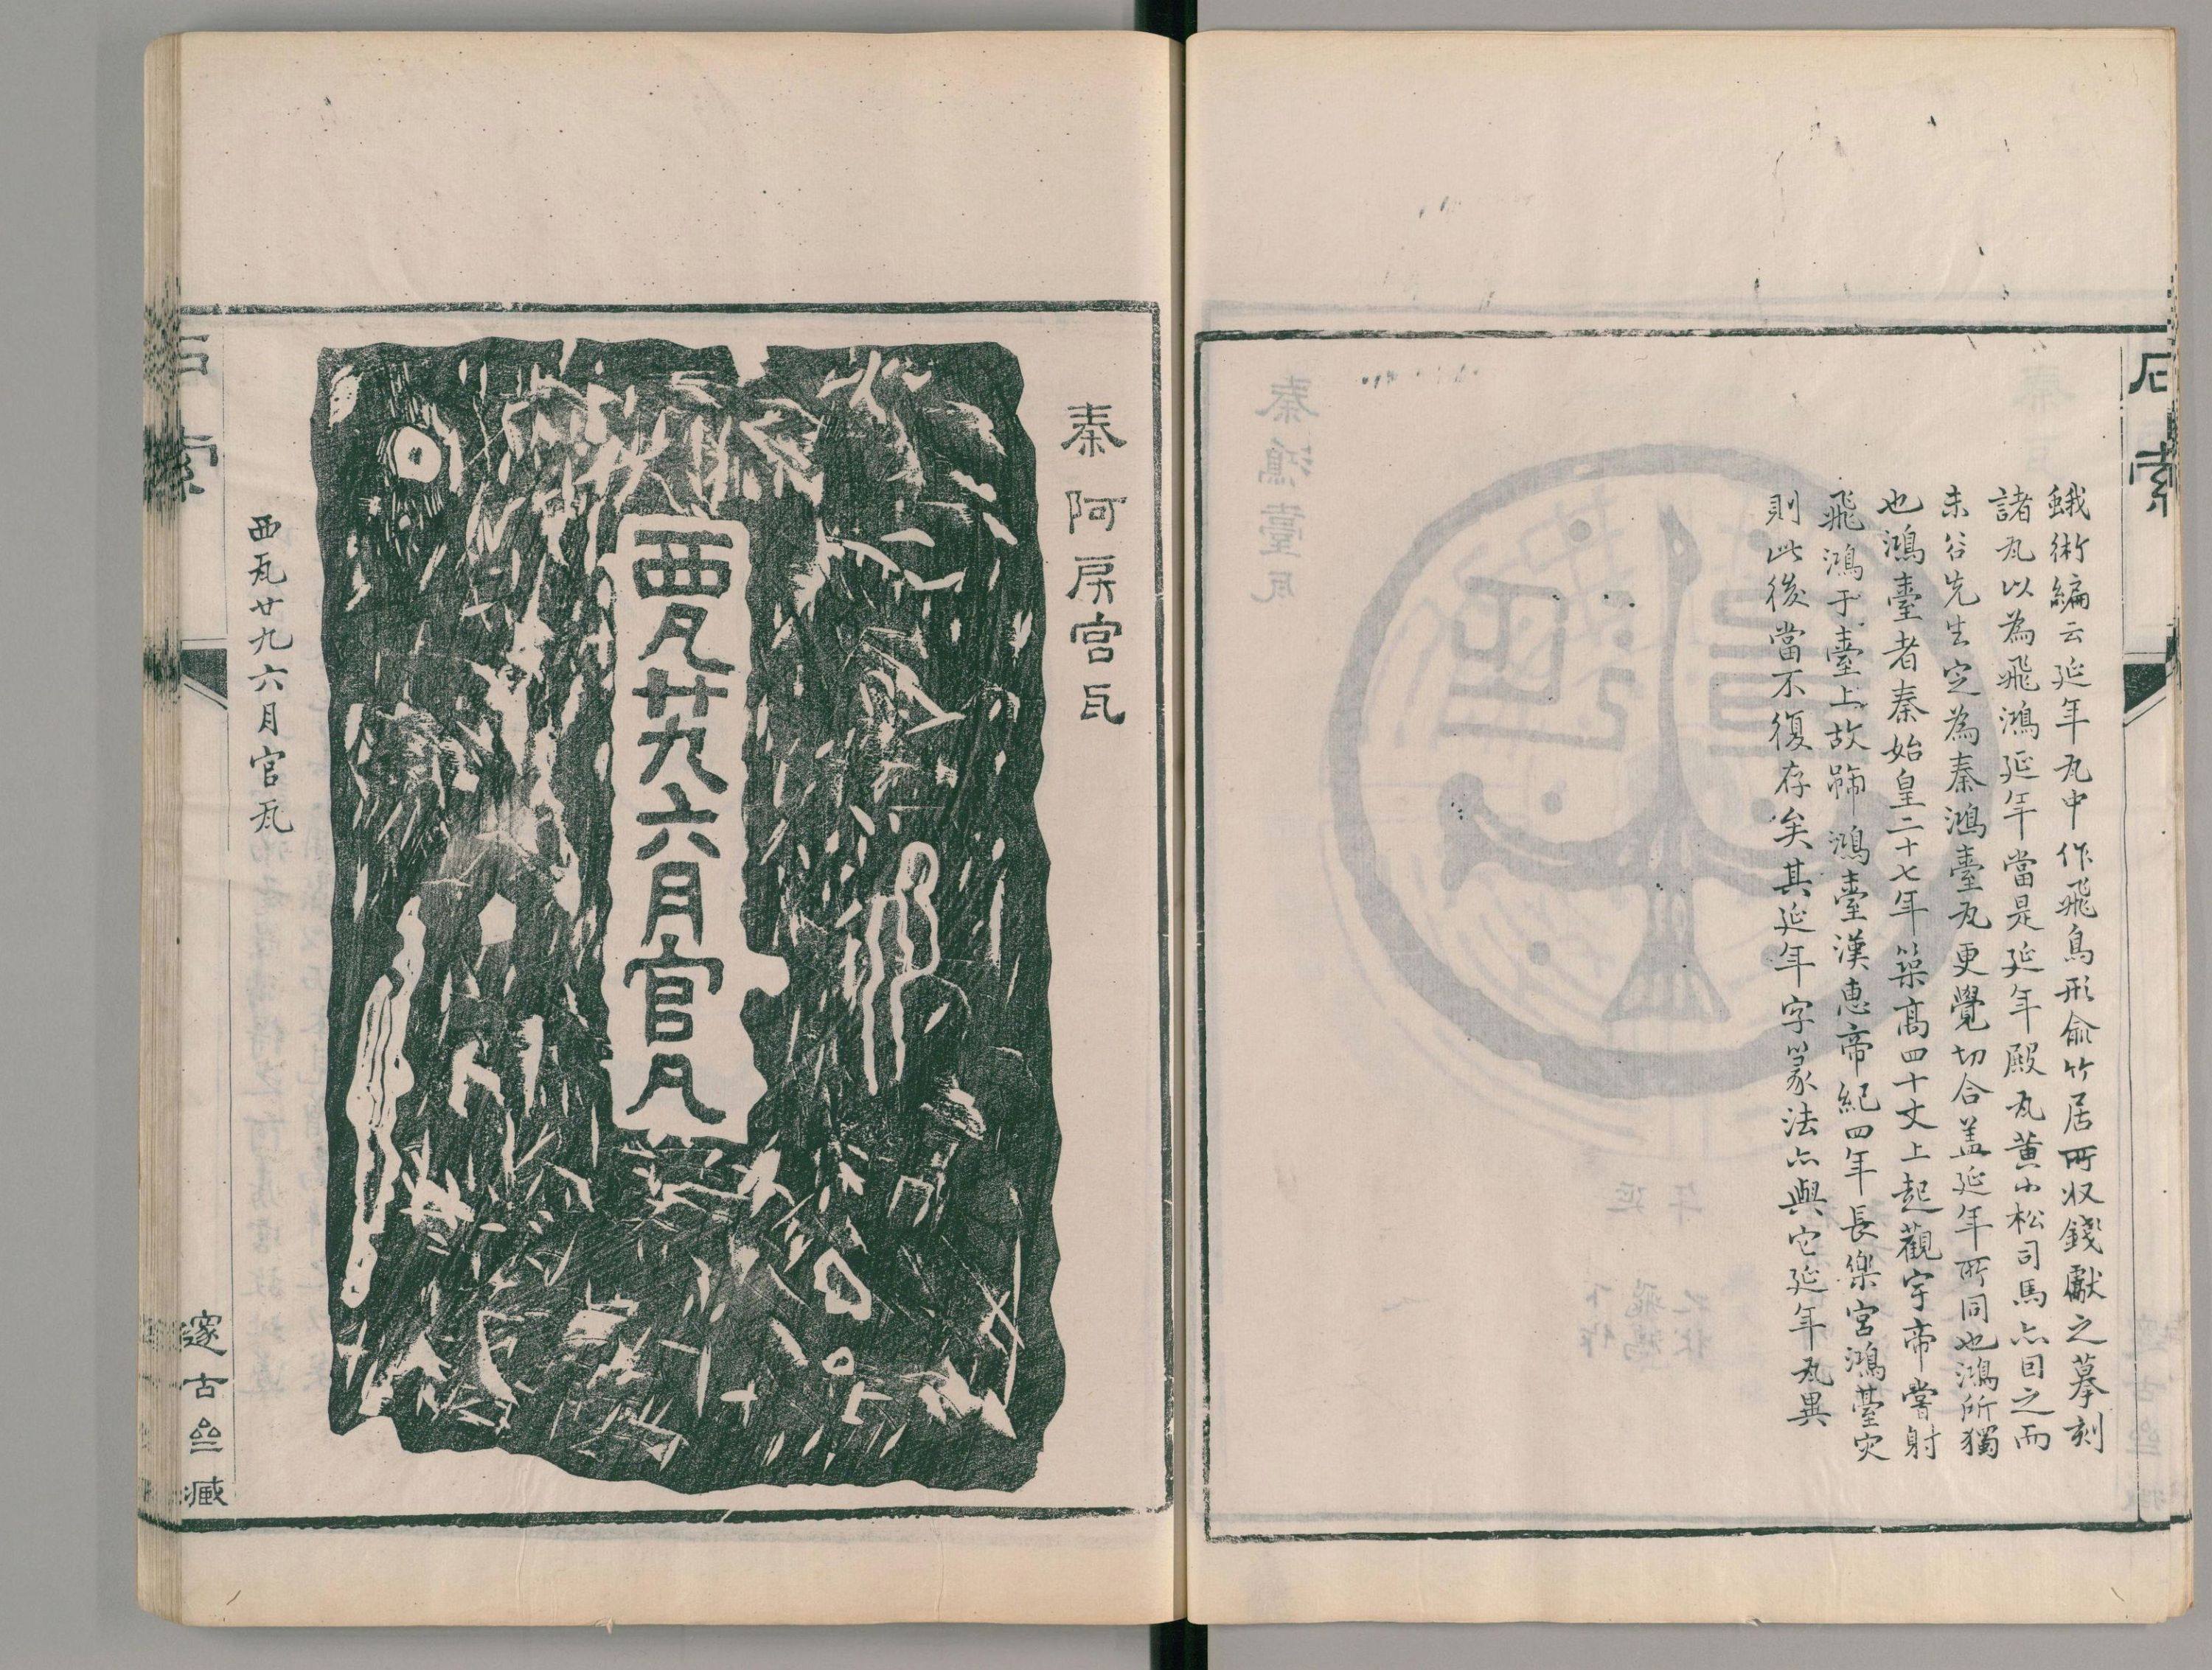 石索
蛾術編云延年瓦中作飛鳥形俞竹居所收錢獻之摹刻
諸瓦以為飛鴻延年當是延年殿瓦黃小松司馬亦目之而
未谷先生定為秦鴻臺瓦更覺切合盖延年所同也鴻所獨
也鴻臺者秦始皇二十七年築高四十丈上起觀宇帝嘗射
飛鴻于臺上故歸鴻臺漢惠帝紀四年長樂宮鴻臺灾
則此後當不復存矣其延年字篆法亦與它延年瓦異
秦阿房宮瓦
西瓦廿九六月官瓦
西瓦廿九六月官瓦
石索
邃古亝藏